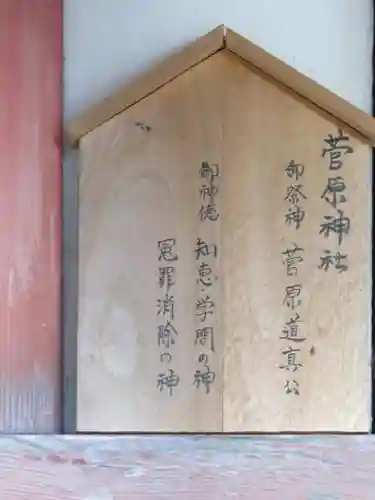 菅原神社
御祭神 菅原道真公
御神徳 知恵・学問の神
冤罪消除の神